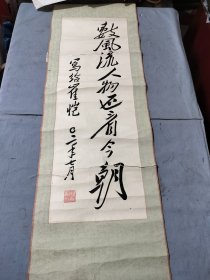 数风流人物还看今朝
写给崔恺
〇二年七月